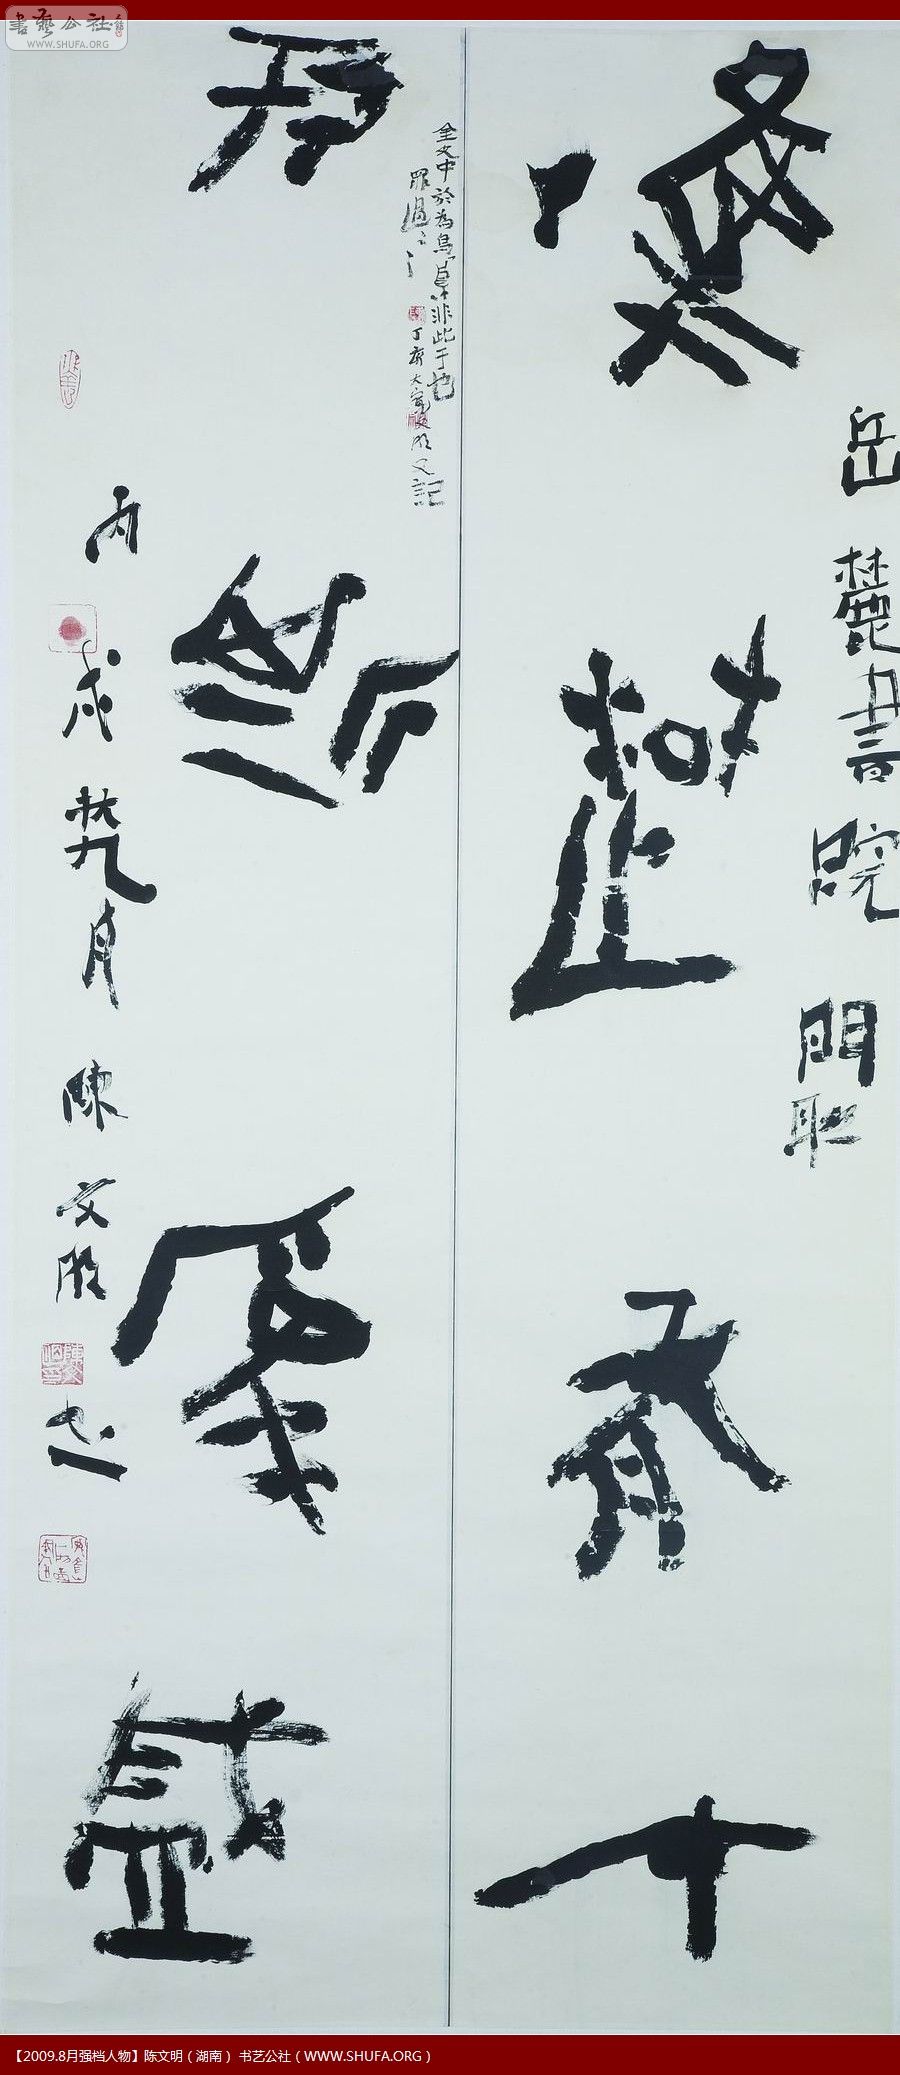 書艺公社
WWW.SHUFA.ORG
唯楚有才
岳麓書院門聯
於斯為盛
金文中於為鳥
非此于也
丁亥大寒文明又記
丙戌楚月陳文明
【2009.8月强档人物】陈文明（湖南） 书艺公社（WWW.SHUFA.ORG）